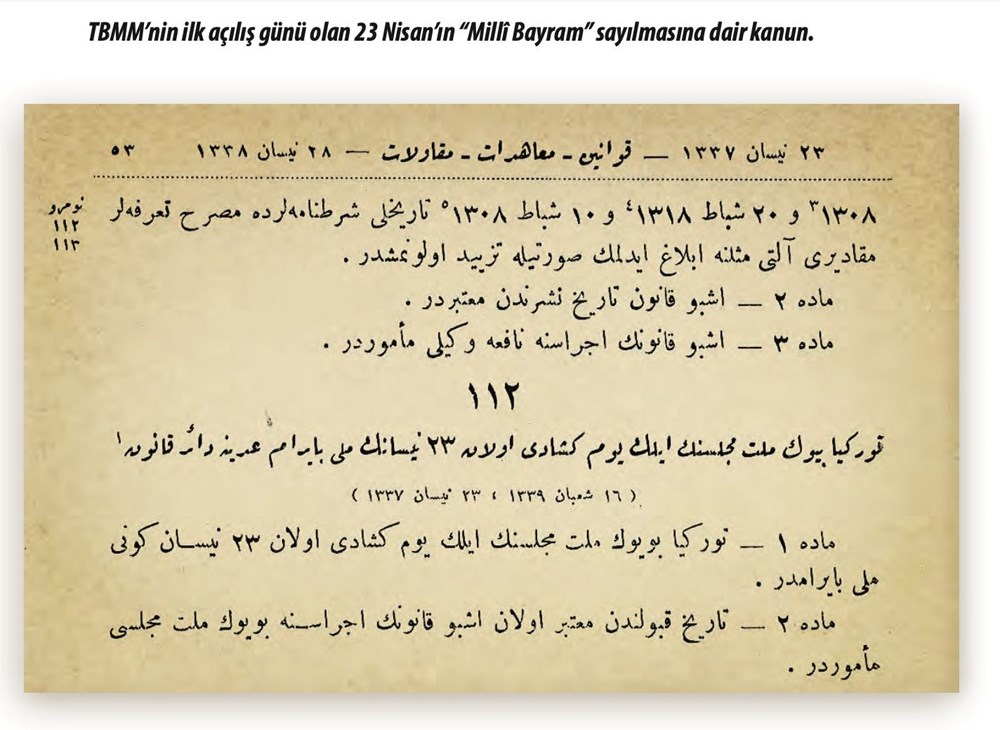 TBMM’nin ilk açılış günü olan 23 Nisan’ın “Millî Bayram” sayılmasına dair kanun.
٢٣ نيسان ١٣٣٧ — قوانين - معاهدات - مقاولات — ٢٨ نيسان ١٣٣٨ ٥٣
نومرو
١١٢
١١٣
١٣٠٨٣ و ٢٠ شباط ١٣١٨٤ و ١٠ شباط ١٣٠٨٥ تاريخلى شرطنامه‌لرده مصرح تعرفه‌لر
مقاديرى آلتى مثلنه ابلاغ ايدلمك صورتيله تزييد اولونمشدر .
ماده ٢ — اشبو قانون تاريخ نشرندن معتبردر .
ماده ٣ — اشبو قانونك اجراسنه نافعه وكيلى مأموردر .
١١٢
توركيا بيوك ملت مجلسنك ايلك يوم كشادى اولان ٢٣ نيسانك ملى بايرام عدينه دائر قانون١
( ١٦ شعبان ١٣٣٩ ، ٢٣ نيسان ١٣٣٧ )
ماده ١ — توركيا بويوك ملت مجلسنك ايلك يوم كشادى اولان ٢٣ نيسان كونى
ملى بايرامدر .
ماده ٢ — تاريخ قبولندن معتبر اولان اشبو قانونك اجراسنه بويوك ملت مجلسى
مأموردر .